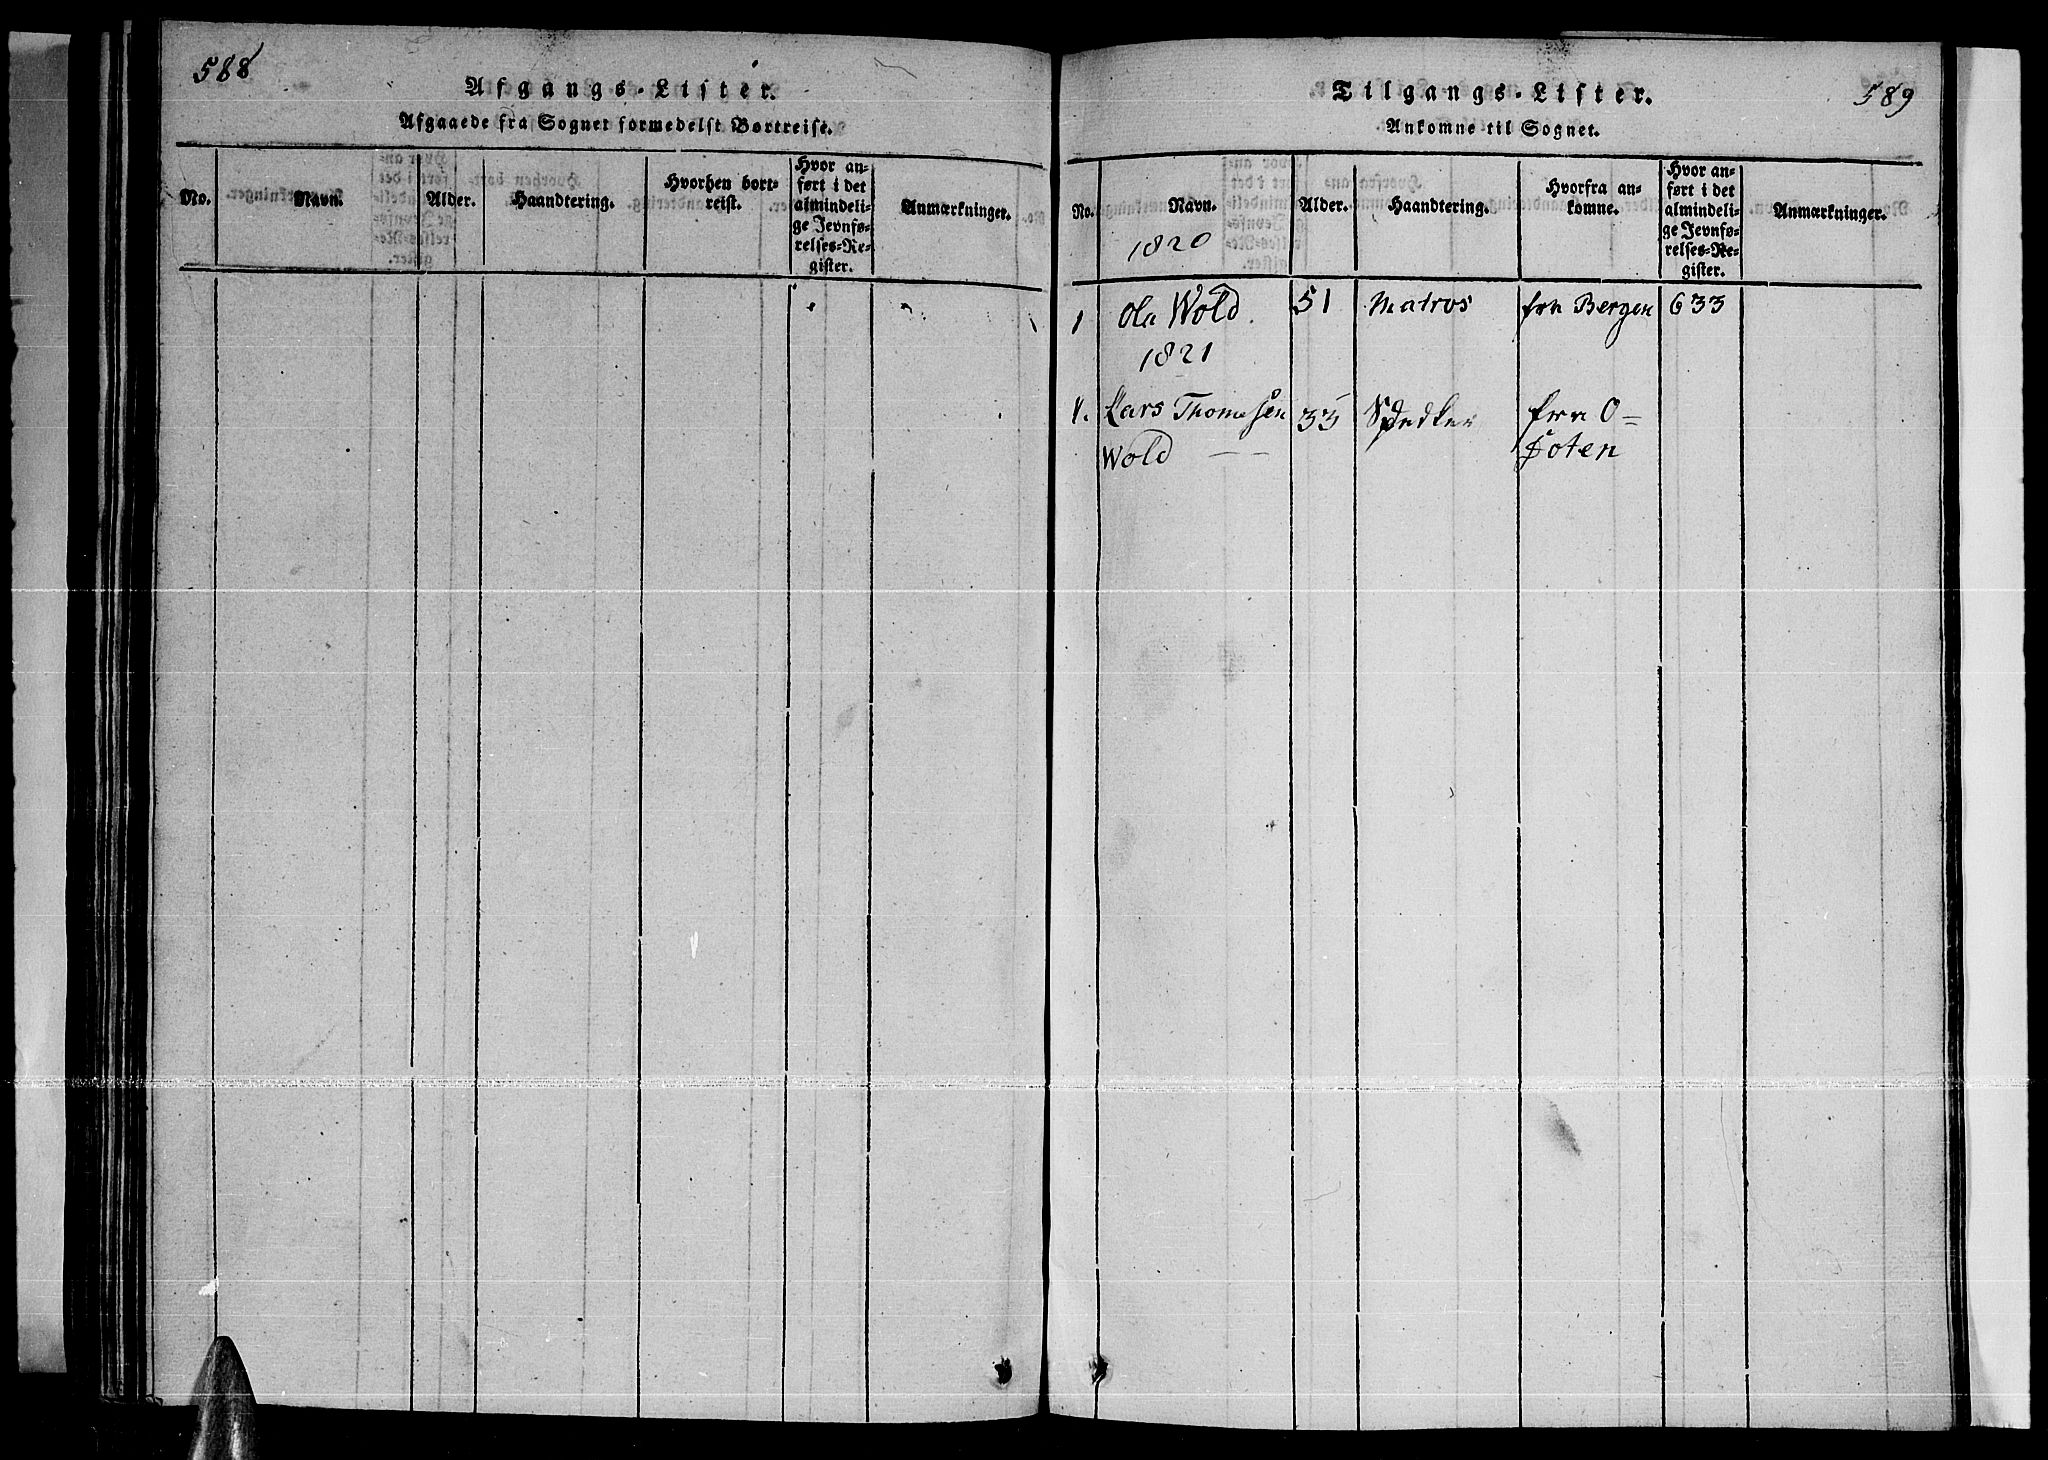 588
Afgangs-Lister.
Afgaaede fra Sognet formedelst Bortreise.
No.
Navn.
Alder.
Haandtering.
Hvorhen bort-
reist.
Hvor an-
ført i det
almindeli-
ge Jevnfø-
relses-Re-
gister.
Anmærkninger.
589
Tilgangs-Lister.
Ankomne til Sognet.
No.
Navn.
1820
Alder.
Haandtering.
Hvorfra an-
komne.
Hvor an-
ført i det
almindeli-
ge Jevnfø-
relses-Re-
gister.
Anmærkninger.
1 Ola Wold. 51 Matros fra Bergen 633
1821
1. Lars Thomesen 33 fra O-
Wold